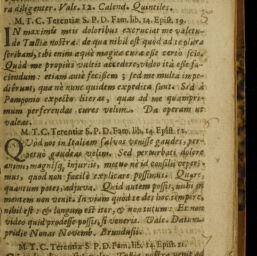 ra diligenter. Vale. 12. Calend. Quintiles.
M. T. C. Terentiæ S. P. D. Fam. lib. 14. Epist. 19.
IN maximis meis doloribus excruciat me valetu-
do Tulliæ nostræ: de qua nihil est quod ad te plura
scribam; tibi enim æquè magnæ curæ esse certò scio.
Quòd me propiùs vultis accedere, video ita esse fa-
ciendum: etiam antè fecissem; sed me multa impe-
dierunt, quæ ne nunc quidem expedita sunt. Sed à
Pomponio expecto literas, quas ad me quampri-
mum perferendas cures velim. Da operam ut
valeas.
M. T. C. Terentiæ S. P. D. Fam. lib. 14. Epist. 12.
QUòd nos in Italiam salvos venisse gaudes, per-
petuò gaudeas velim. Sed perturbati dolore
animi, magnisq; injuriis, metuo ne id consilii ceperi-
mus, quod non facilè explicare possimus. Quare,
quantum potes, adjuva. Quid autem possis, mihi in
mentem non venit. In viam quòd te des hoc tempore,
nihil est: & longum est iter, & non tutum: Et non
video quid prodesse possis, si veneris. Vale. Datum
pridie Nonas Novemb. Brundusii.
M. T. C. Terentiæ S. P. D. Fam. lib. 14. Epist. 21.